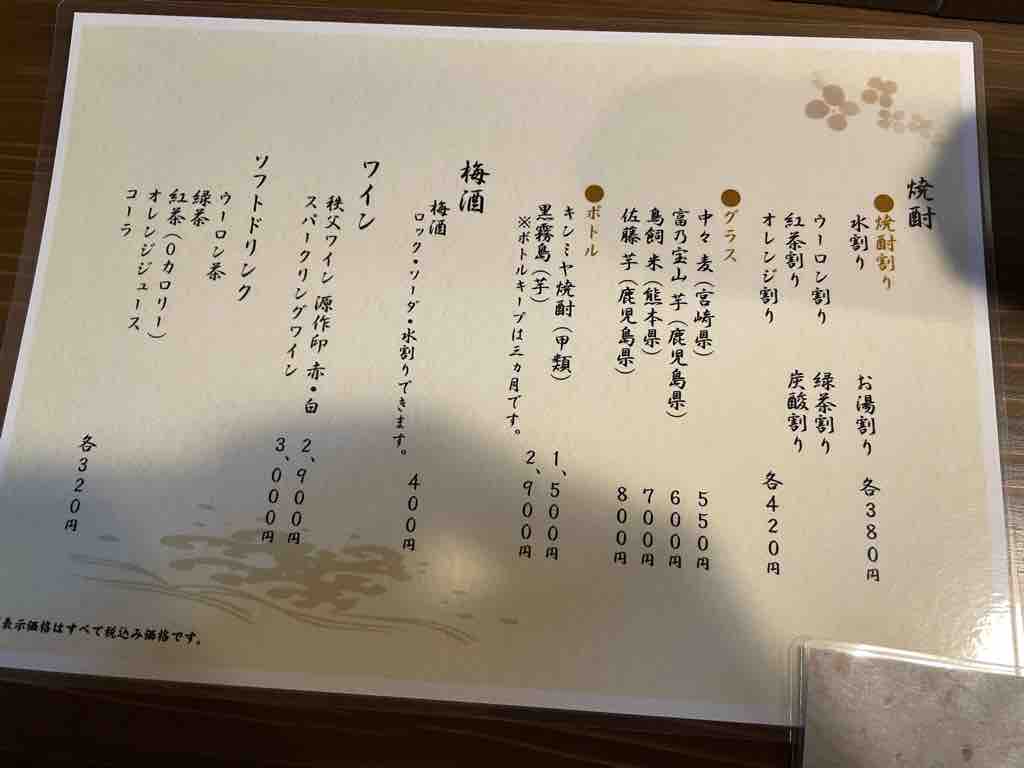 焼酎
●焼酎割り
水割り　お湯割り　各380円
ウーロン割り　緑茶割り
紅茶割り　炭酸割り
オレンジ割り　各420円
●グラス
中々 麦(宮崎県)　550円
富乃宝山 芋(鹿児島県)　600円
鳥飼 米(熊本県)　700円
佐藤 芋(鹿児島県)　800円
●ボトル
キンミヤ焼酎(甲類)　1,500円
黒霧島(芋)　2,900円
※ボトルキープは三カ月です。
梅酒
梅酒　400円
ロック・ソーダ・水割りできます。
ワイン
秩父ワイン 源作印 赤・白　2,900円
スパークリングワイン　3,000円
ソフトドリンク
ウーロン茶
緑茶
紅茶(0カロリー)
オレンジジュース
コーラ
各320円
表示価格はすべて税込み価格です。